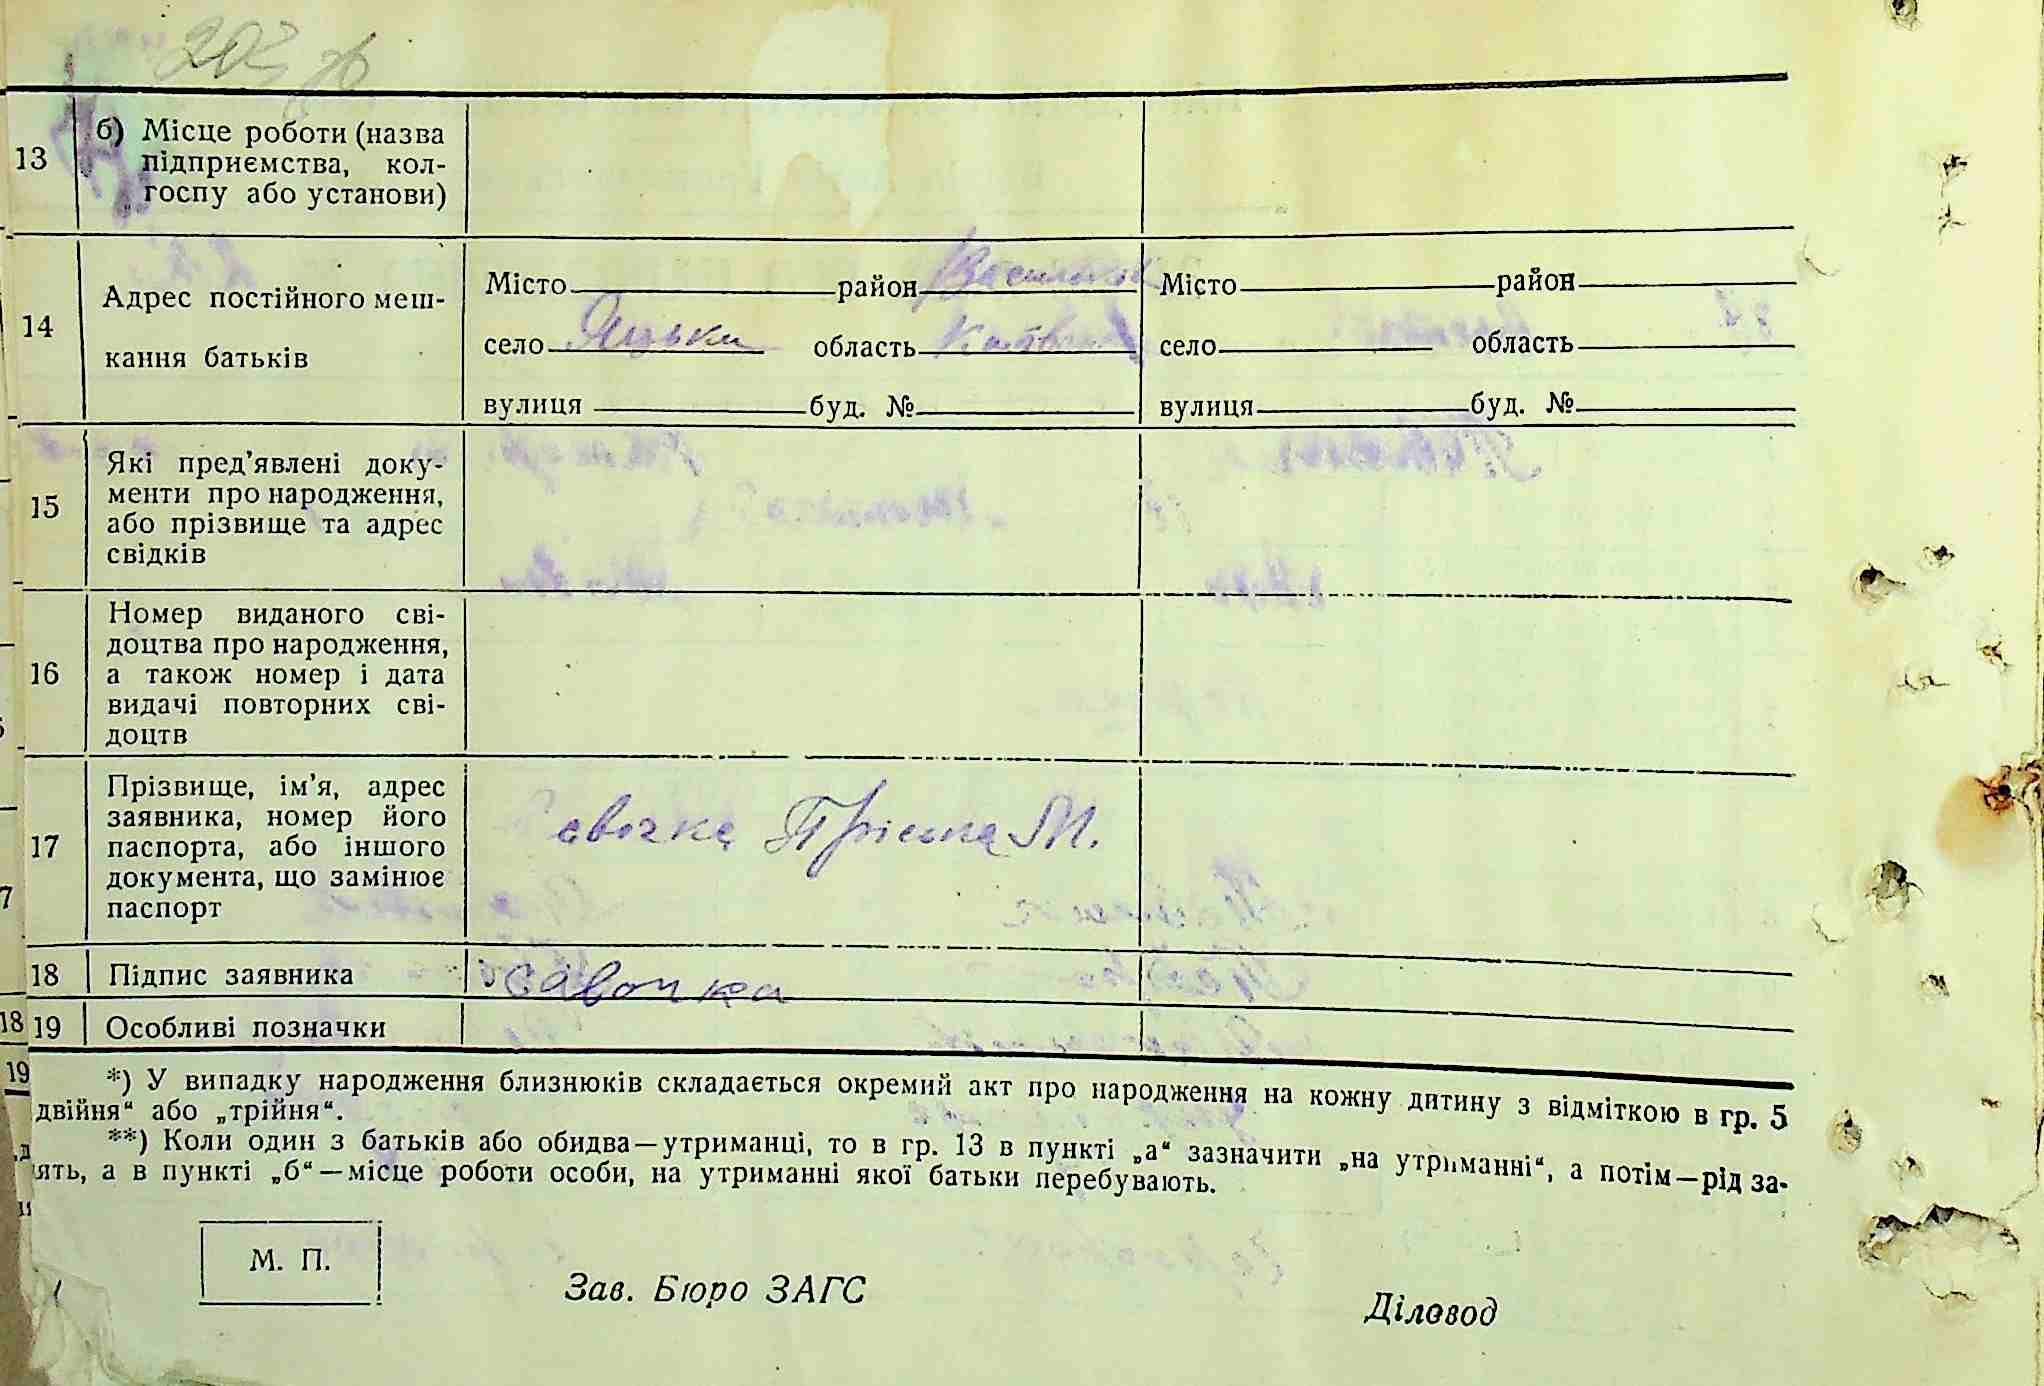 203 зв
13 б) Місце роботи (назва
підприємства, кол-
госпу або установи)
14 Адрес постійного меш-
кання батьків
Місто район Васильків Місто район
село Яцьки область Київська село область
вулиця буд. № вулиця буд. №
15 Які пред’явлені доку-
менти про народження,
або прізвище та адрес
свідків
16 Номер виданого сві-
доцтва про народження,
а також номер і дата
видачі повторних сві-
доцтв
17 Прізвище, ім’я, адрес
заявника, номер його
паспорта, або іншого
документа, що замінює
паспорт
Савочка М.
18 Підпис заявника Савочка
19 Особливі позначки
*) У випадку народження близнюків складається окремий акт про народження на кожну дитину з відміткою в гр. 5
двійня“ або „трійня“.
**) Коли один з батьків або обидва—утриманці, то в гр. 13 в пункті „а“ зазначити „на утриманні“, а потім—рід за-
ять, а в пункті „б“—місце роботи особи, на утриманні якої батьки перебувають.
М. П.
Зав. Бюро ЗАГС
Діловод